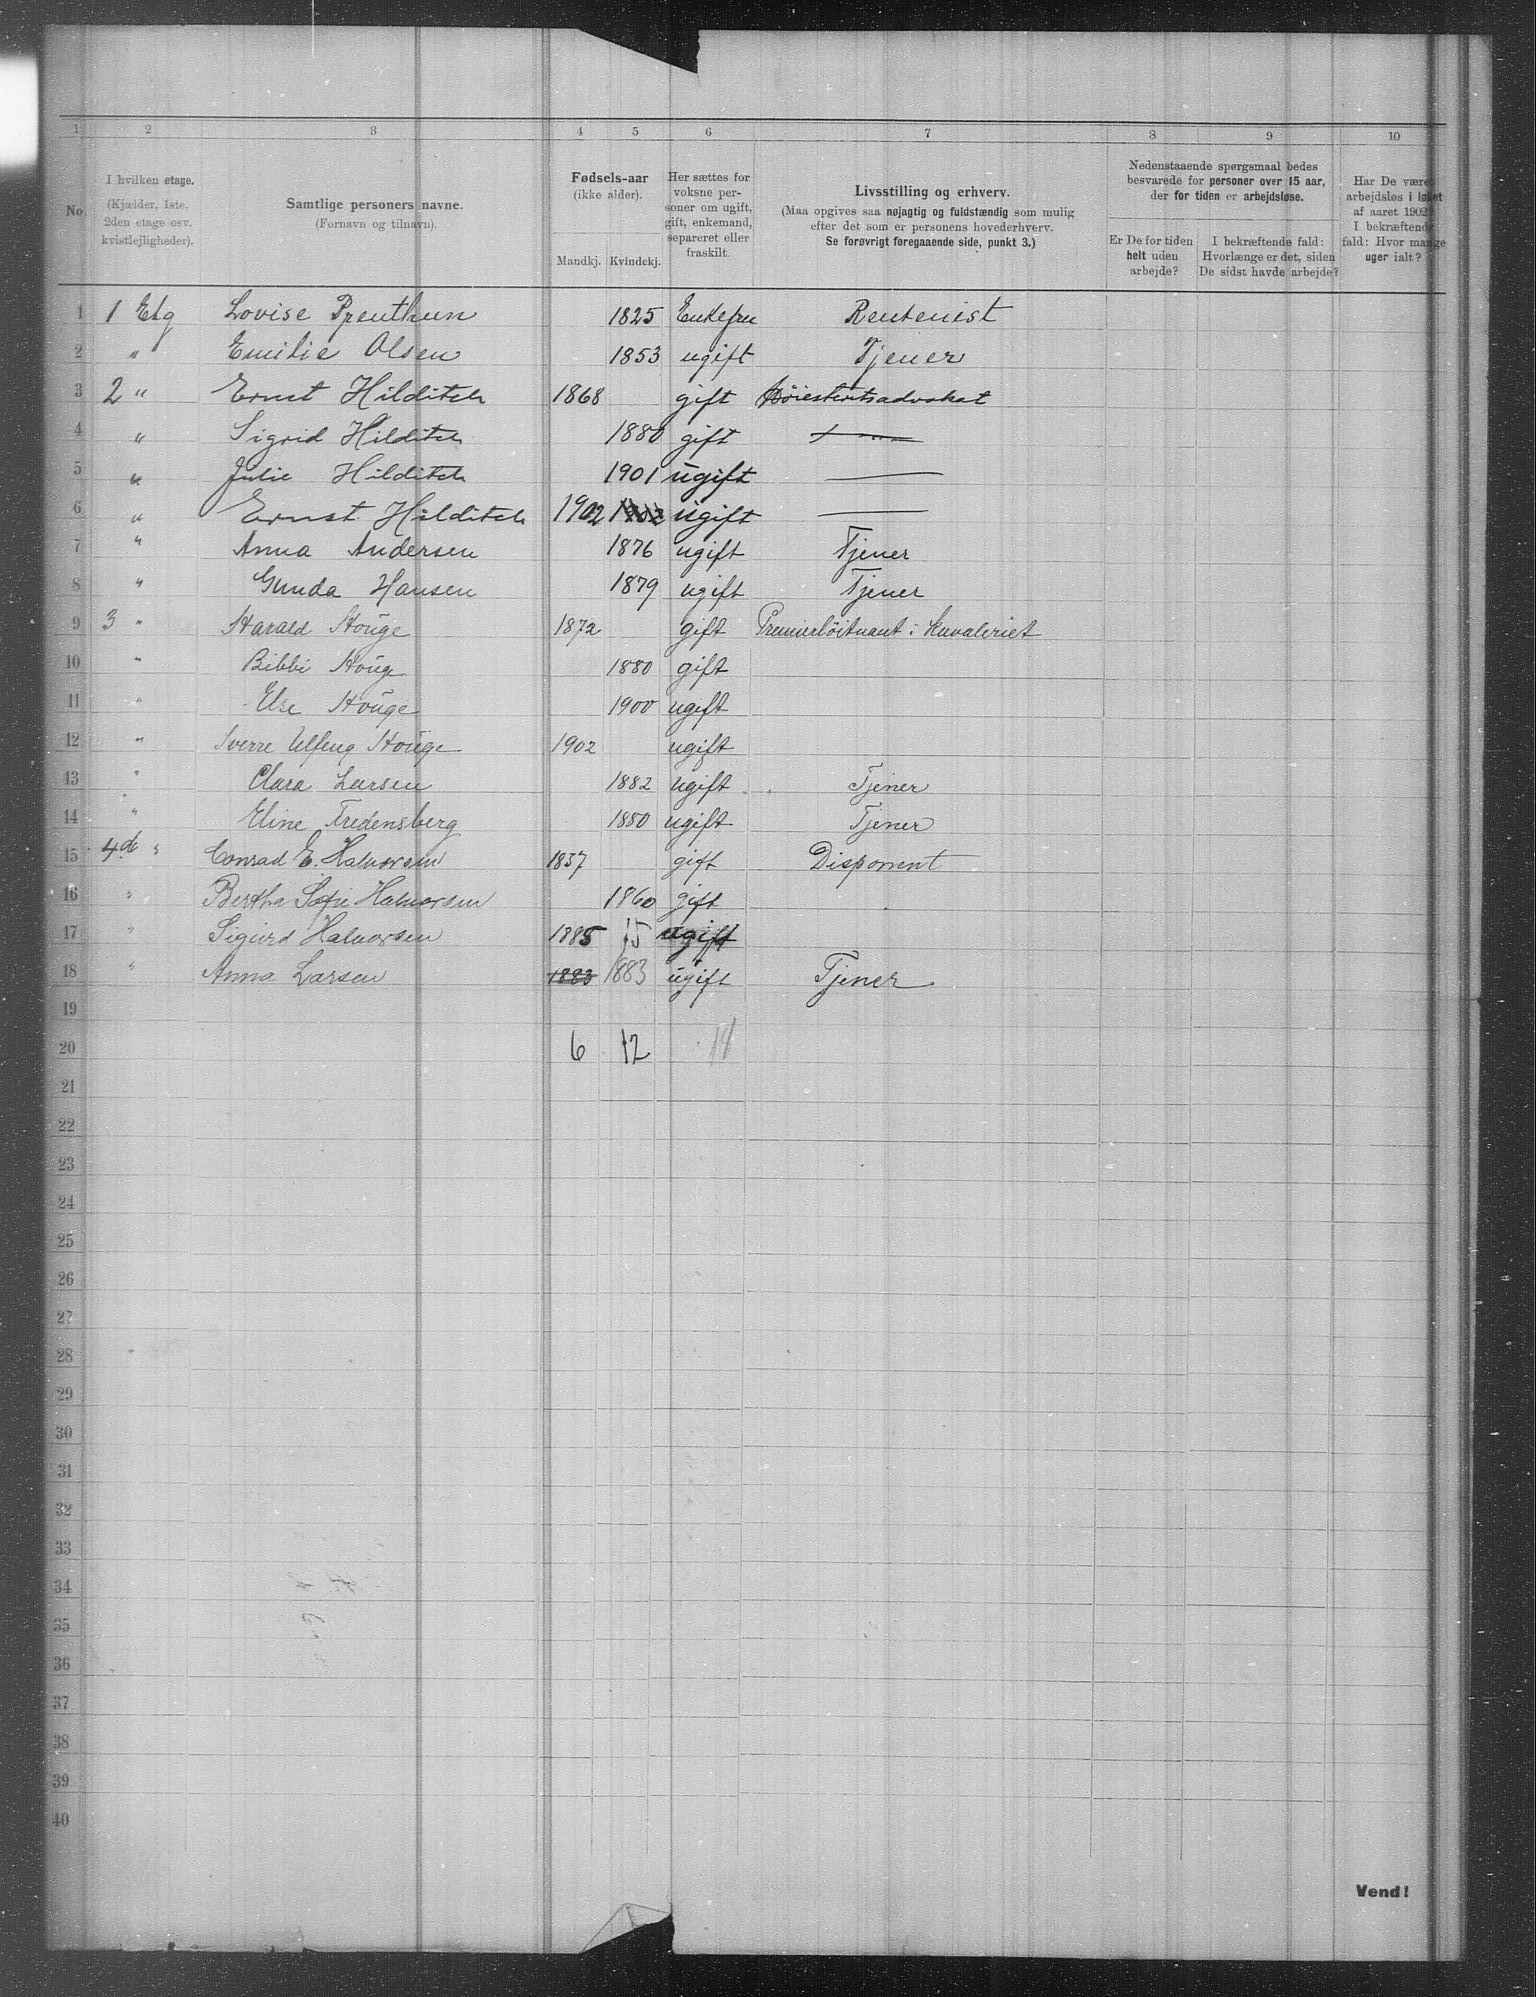 1 2 3 4 5 6 7 8 9 10
No.
I hvilken etage.
(Kjælder, 1ste,
2den etage osv.
kvistlejligheder).
Samtlige personers navne.
(Fornavn og tilnavn).
Fødsels-aar
(ikke alder).
Mandkj. Kvindekj.
Her sættes for
voksne per-
soner om ugift,
gift, enkemand,
separeret eller
fraskilt.
Livsstilling og erhverv.
(Maa opgives saa nøjagtig og fuldstændig som mulig
efter det som er personens hovederhverv.
Se forøvrigt foregaaende side, punkt 3.)
Nedenstaaende spørgsmaal bedes
besvarede for personer over 15 aar,
der for tiden er arbejdsløse.
Er De for tiden
helt uden
arbejde?
I bekræftende fald:
Hvorlænge er det, siden
De sidst havde arbejde?
Har De været
arbejdsløs i løbet
af aaret 1902?
I bekræftende
fald: Hvor mange
uger ialt?
1 1 Etg Lovise Preuthun 1825 Enkefru Rentenist
2 " Emilie Olsen 1853 ugift Tjener
3 2 " Ernst Hilditch 1868 gift Høiesteretsadvokat
4 " Sigrid Hilditch 1880 gift —
5 " Julie Hilditch 1901 ugift —
6 " Ernst Hilditch 1902 1902 ugift —
7 " Anna Andersen 1876 ugift Tjener
8 " Gunda Hansen 1879 ugift Tjener
9 3 " Harald Houge 1872 gift Premierløitnant i kavaleriet
10 " Bibbi Houg 1880 gift
11 " Else Houge 1900 ugift
12 " Sverre Houge 1902 ugift
13 " Clara Larsen 1882 ugift Tjener
14 " Eline Fredensberg 1880 ugift Tjener
15 4de " Conrad E. Halvorsen 1837 gift Disponent
16 " Bertha Sofie Halvorsen 1860 gift
17 " Sigurd Halvorsen 1885 15 ugift
18 " Anna Larsen 1883 1883 ugift Tjener
19
20 6 12
21
22
23
24
25
26
27
28
29
30
31
32
33
34
35
36
37
38
39
40
Vend!